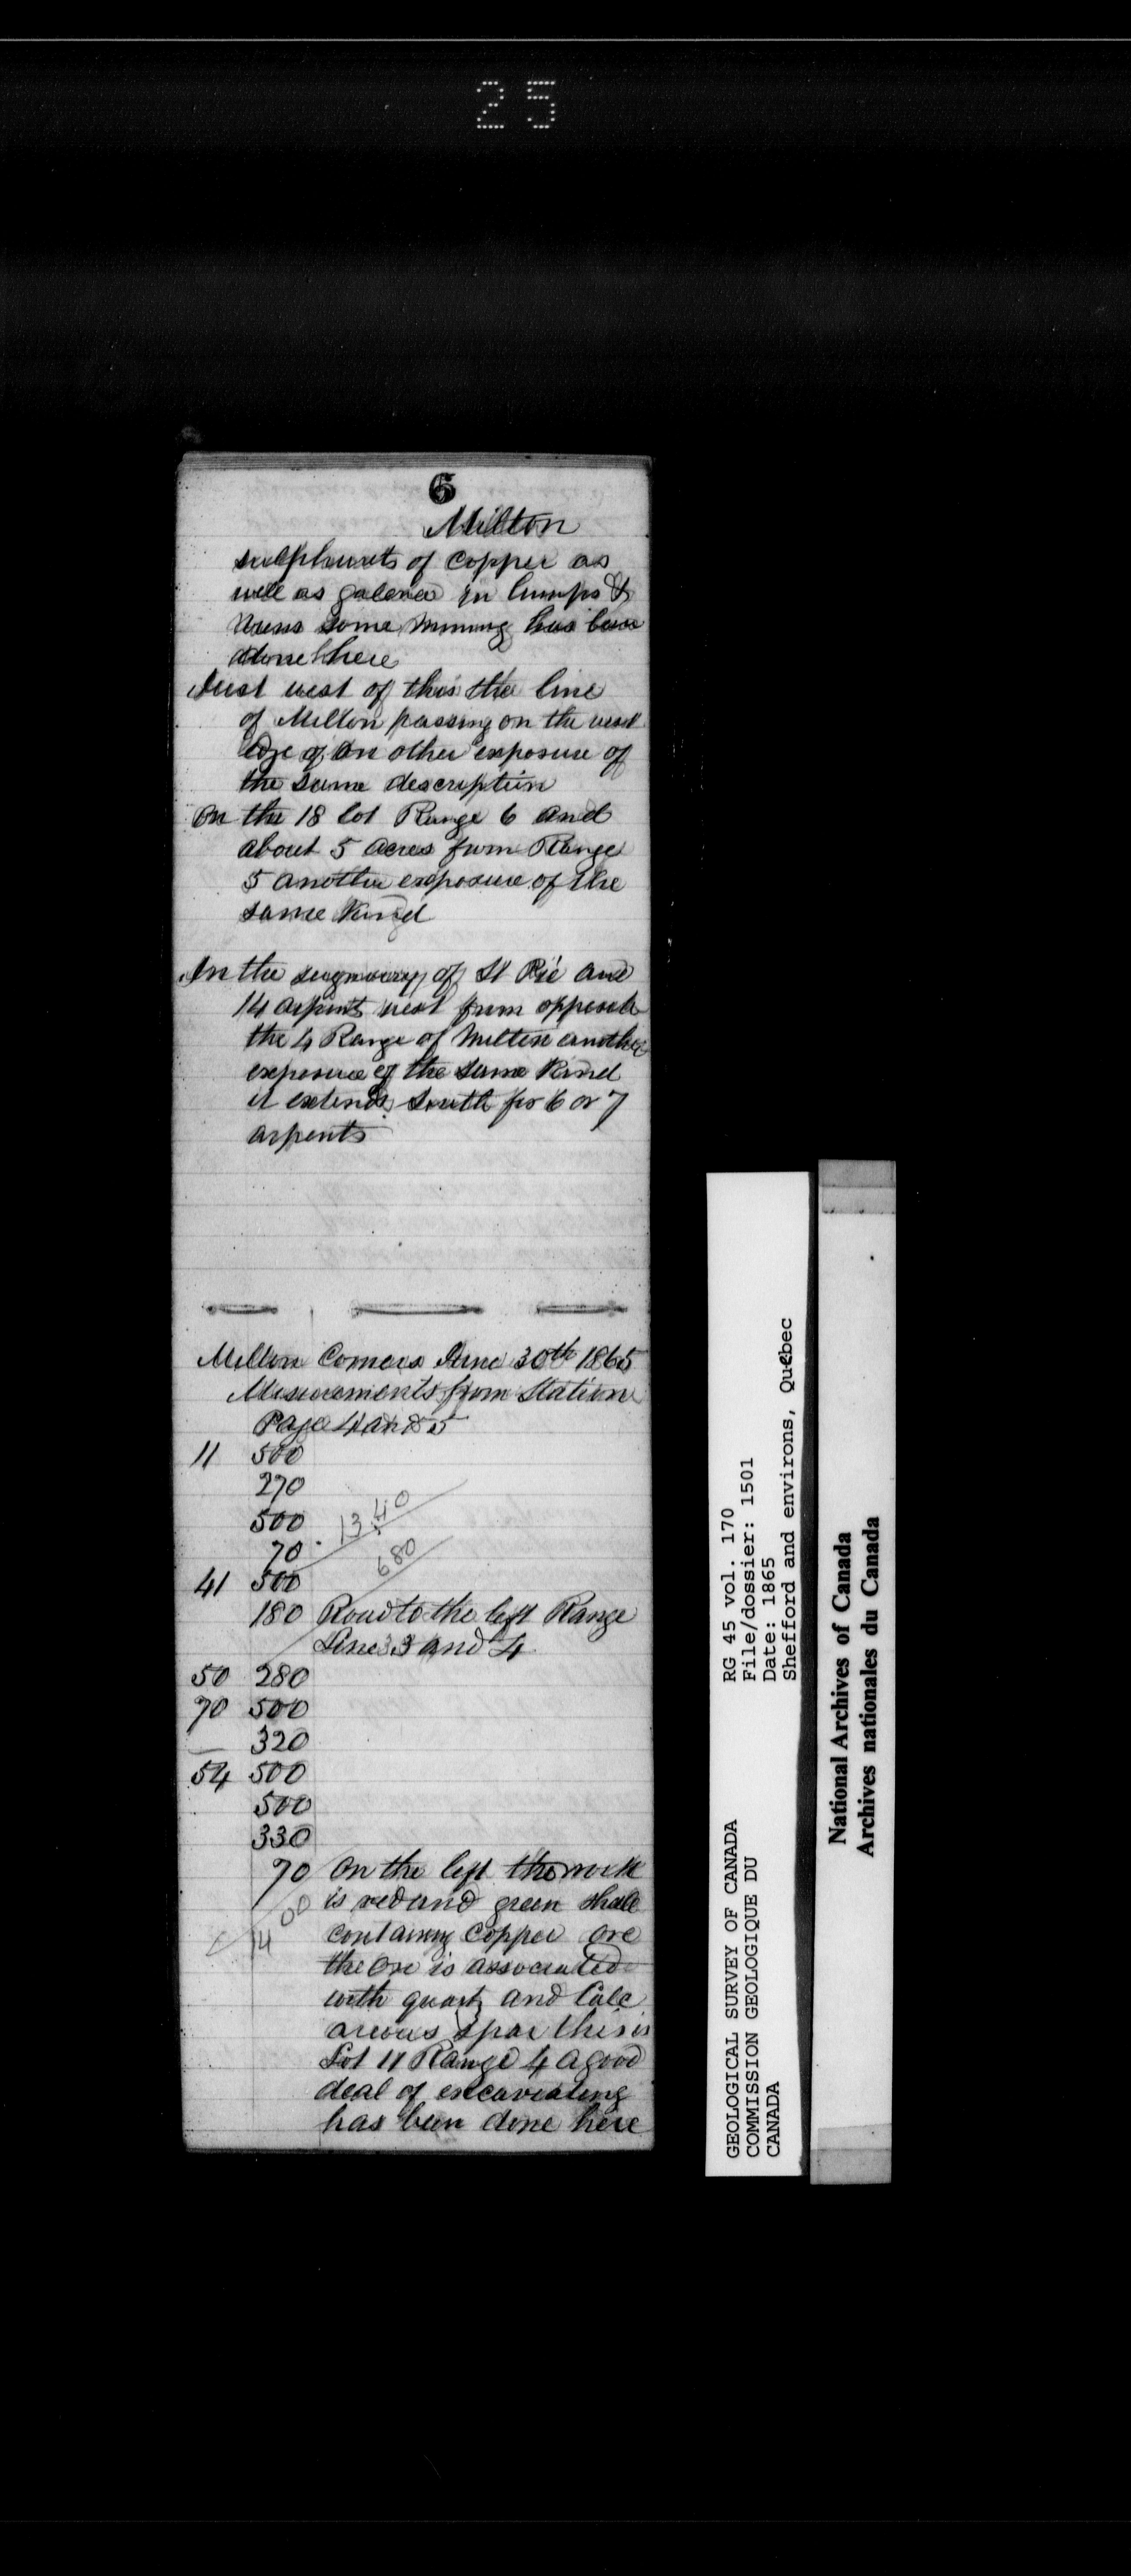 25
6
Milton
sulphurets of Copper as
well as galena in lumps &
veins some mining has been
done here
Just west of this the line
of Milton passing on the west
edge of an other exposure of
the same description
On the 18 lot Range 6 and
about 5 acres from Range
5 another exposure of the
same kind
In the seignoury of St Pie and
14 arpents west from opposite
the 4 Range of Milton another
exposure of the same kind
it extends south for 6 or 7
arpents
Milton Corners June 30th 1865
Measurements from Station
Page 4 and 5
11 500
270
500 13.40
70
680
41 500
180 Road to the left Range
Line 3 and 4
50 280
70 500
320
54 500
500
330
70 On the left the rock
is red and green shale
1400
containing Copper ore
the ore is associated
with quartz and Calc
areous spar this is
Lot 11 Range 4 a good
deal of excavating
has been done here
GEOLOGICAL SURVEY OF CANADA
COMMISSION GEOLOGIQUE DU
CANADA
RG 45 vol. 170
File/dossier: 1501
Date: 1865
Shefford and environs, Quebec
National Archives of Canada
Archives nationales du Canada